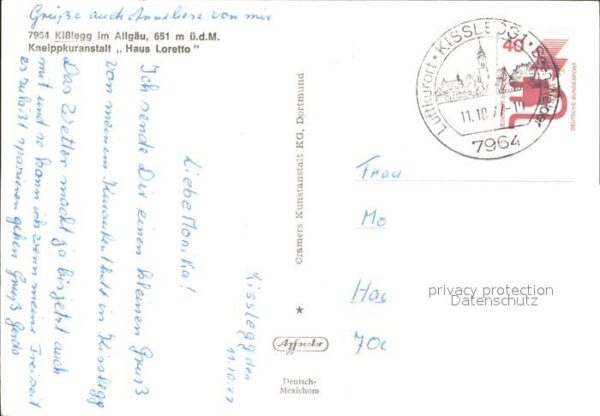 Grüße auch Anneliese von mir
7964 Kißlegg im Allgäu, 651 m ü.d.M.
Kneippkuranstalt „ Haus Loretto "
Kisslegg den
11.10.77
Liebe Monika!
Ich sende Dir einen kleinen Gruß
von meinem Kuraufenthalt in Kisslegg
Das Wetter macht ja bis jetzt auch
mit und so kann ich wenn meine Freizeit
es zuläßt spazieren gehen Gruß Gerda
Cramers Kunstanstalt KG, Dortmund
Agfacolor
Deutsch-
Mexichom
Luftkurort · KISSLEGG 1 ·
11.10.77
7964
40
DEUTSCHE BUNDESPOST
Frau
Mo
Ha
70
privacy protection
Datenschutz